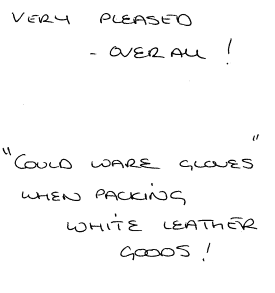 VERY PLEASED
- OVERALL !
"COULD WARE GLOVES"
WHEN PACKING
WHITE LEATHER
GOODS !